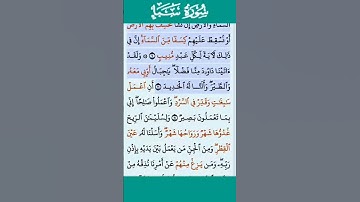 سُورَةُ سَبَإٍ
السَّمَاءِ وَالْأَرْضِ إِن نَّشَأْ نَخْسِفْ بِهِمُ الْأَرْضَ
أَوْ نُسْقِطْ عَلَيْهِمْ كِسَفًا مِّنَ السَّمَاءِ إِنَّ فِي
ذَٰلِكَ لَآيَةً لِّكُلِّ عَبْدٍ مُّنِيبٍ ۝ وَلَقَدْ
ءَاتَيْنَا دَاوُودَ مِنَّا فَضْلًا يَا جِبَالُ أَوِّبِي مَعَهُ
وَالطَّيْرَ وَأَلَنَّا لَهُ الْحَدِيدَ ۝ أَنِ اعْمَلْ
سَابِغَاتٍ وَقَدِّرْ فِي السَّرْدِ وَاعْمَلُوا صَالِحًا إِنِّي
بِمَا تَعْمَلُونَ بَصِيرٌ ۝ وَلِسُلَيْمَانَ الرِّيحَ
غُدُوُّهَا شَهْرٌ وَرَوَاحُهَا شَهْرٌ وَأَسَلْنَا لَهُ عَيْنَ
الْقِطْرِ وَمِنَ الْجِنِّ مَن يَعْمَلُ بَيْنَ يَدَيْهِ بِإِذْنِ
رَبِّهِ وَمَن يَزِغْ مِنْهُمْ عَنْ أَمْرِنَا نُذِقْهُ مِنْ